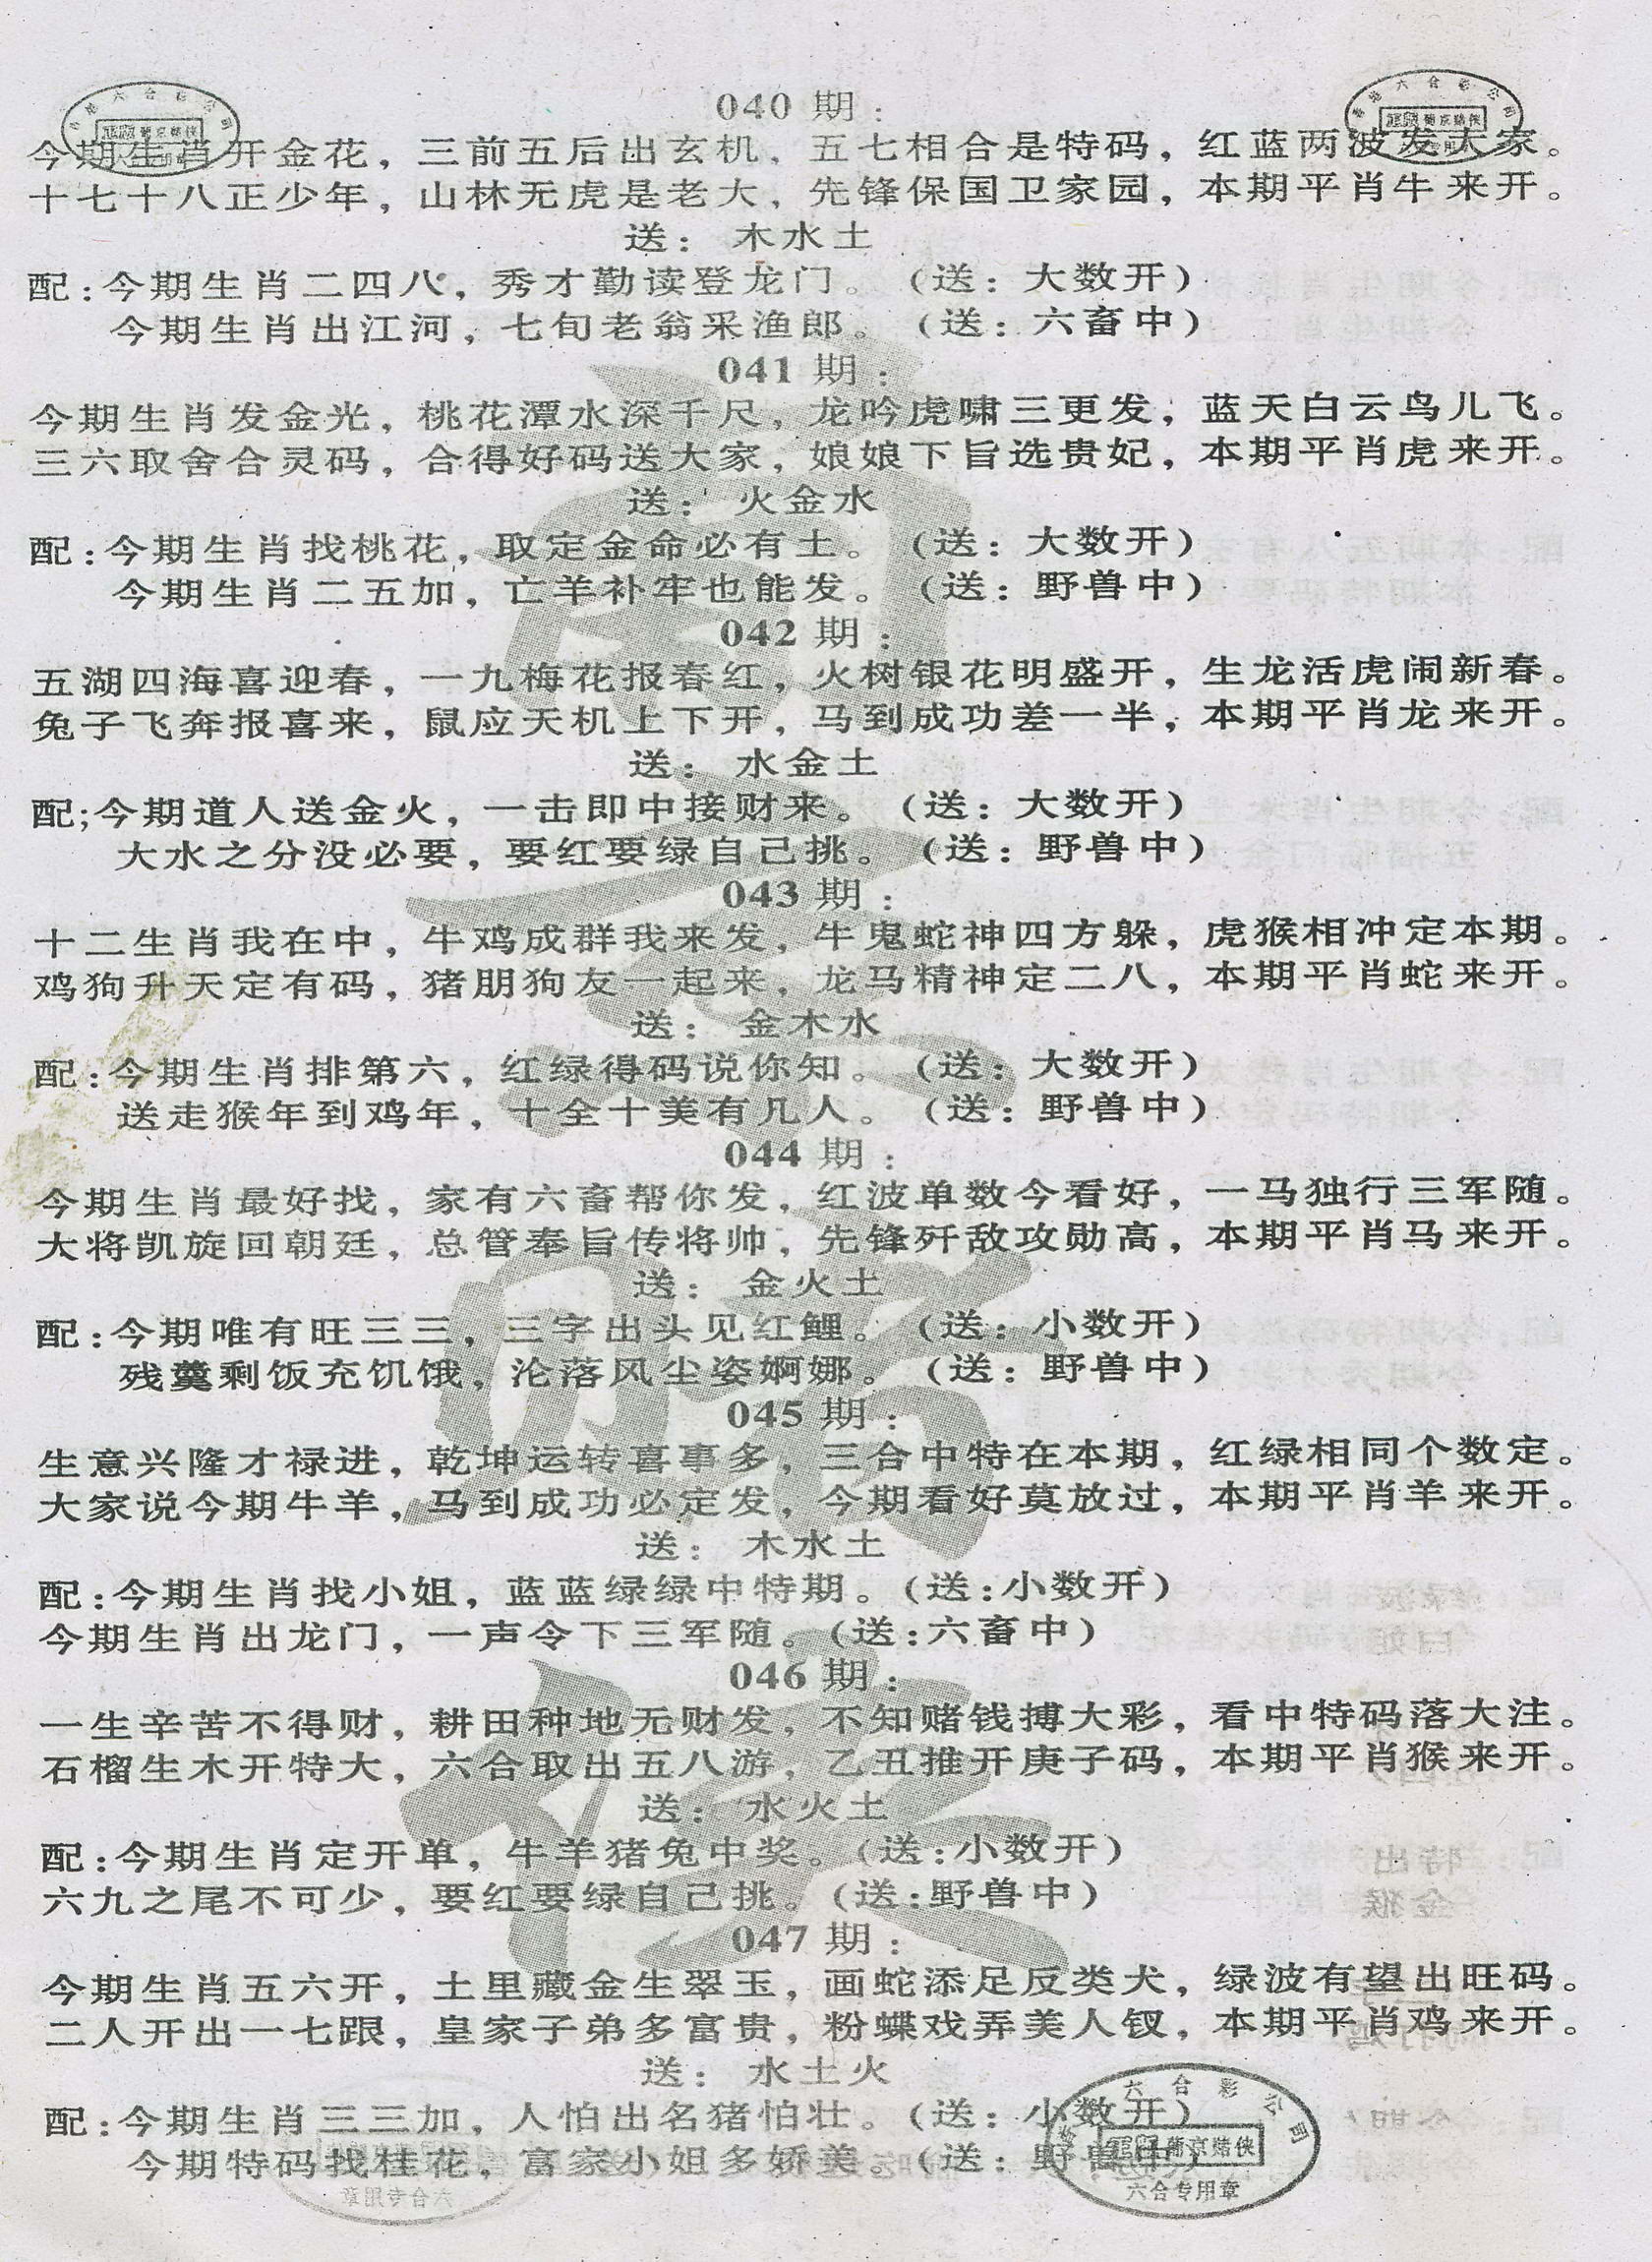 040 期：
今期生肖开金花，三前五后出玄机，五七相合是特码，红蓝两波发大家。
十七十八正少年，山林无虎是老大，先锋保国卫家园，本期平肖牛来开。
送： 木水土
配:今期生肖二四八，秀才勤读登龙门。（送：大数开）
今期生肖出江河，七旬老翁采渔郎。（送：六畜中）
041 期：
今期生肖发金光，桃花潭水深千尺，龙吟虎啸三更发，蓝天白云鸟儿飞。
三六取舍合灵码，合得好码送大家，娘娘下旨选贵妃，本期平肖虎来开。
送： 火金水
配:今期生肖找桃花，取定金命必有土。（送：大数开）
今期生肖二五加，亡羊补牢也能发。（送：野兽中）
042 期：
五湖四海喜迎春，一九梅花报春红，火树银花明盛开，生龙活虎闹新春。
兔子飞奔报喜来，鼠应天机上下开，马到成功差一半，本期平肖龙来开。
送： 水金土
配;今期道人送金火，一击即中接财来。（送：大数开）
大水之分没必要，要红要绿自己挑。（送：野兽中）
043 期：
十二生肖我在中，牛鸡成群我来发，牛鬼蛇神四方躲，虎猴相冲定本期。
鸡狗升天定有码，猪朋狗友一起来，龙马精神定二八，本期平肖蛇来开。
送： 金木水
配:今期生肖排第六，红绿得码说你知。（送：大数开）
送走猴年到鸡年，十全十美有几人。（送：野兽中）
044 期：
今期生肖最好找，家有六畜帮你发，红波单数今看好，一马独行三军随。
大将凯旋回朝廷，总管奉旨传将帅，先锋歼敌攻勋高，本期平肖马来开。
送： 金火土
配:今期唯有旺三三，三字出头见红鲤。（送：小数开）
残羹剩饭充饥饿，沦落风尘姿婀娜。（送：野兽中）
045 期：
生意兴隆才禄进，乾坤运转喜事多，三合中特在本期，红绿相同个数定。
大家说今期牛羊，马到成功必定发，今期看好莫放过，本期平肖羊来开。
送： 木水土
配:今期生肖找小姐，蓝蓝绿绿中特期。（送:小数开）
今期生肖出龙门，一声令下三军随。（送:六畜中）
046 期：
一生辛苦不得财，耕田种地无财发，不知赌钱搏大彩，看中特码落大注。
石榴生木开特大，六合取出五八游，乙丑推开庚子码，本期平肖猴来开。
送： 水火土
配:今期生肖定开单，牛羊猪兔中奖。（送:小数开）
六九之尾不可少，要红要绿自己挑。（送:野兽中）
047 期：
今期生肖五六开，土里藏金生翠玉，画蛇添足反类犬，绿波有望出旺码。
二人开出一七跟，皇家子弟多富贵，粉蝶戏弄美人钗，本期平肖鸡来开。
送： 水土火
配:今期生肖三三加，人怕出名猪怕壮。（送：小数开）
今期特码找桂花，富家小姐多娇美。（送：野兽中）
六合彩公司
葡京赌侠
六合专用章